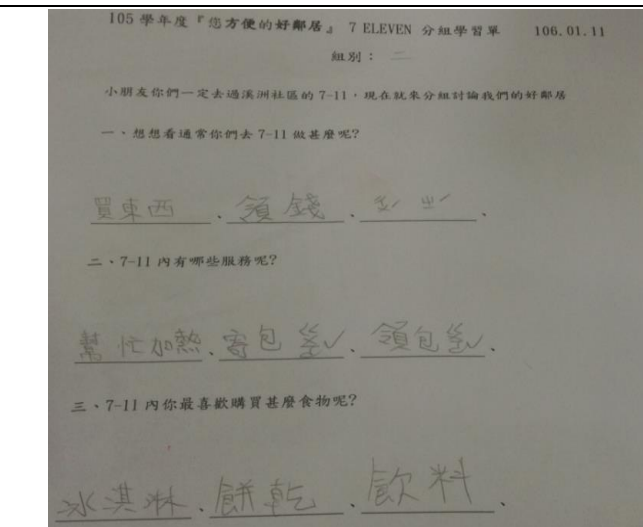 105 學年度『您方便的好鄰居』 7 ELEVEN 分組學習單 106.01.11
組別： 二
小朋友你們一定去過溪洲社區的 7-11，現在就來分組討論我們的好鄰居
一、想想看通常你們去 7-11 做甚麼呢?
買東西、領錢、
二、7-11 內有哪些服務呢?
幫忙加熱、寄包ㄍㄨㄛˇ、領包ㄍㄨㄛˇ、
三、7-11 內你最喜歡購買甚麼食物呢?
冰淇淋、餅乾、飲料、